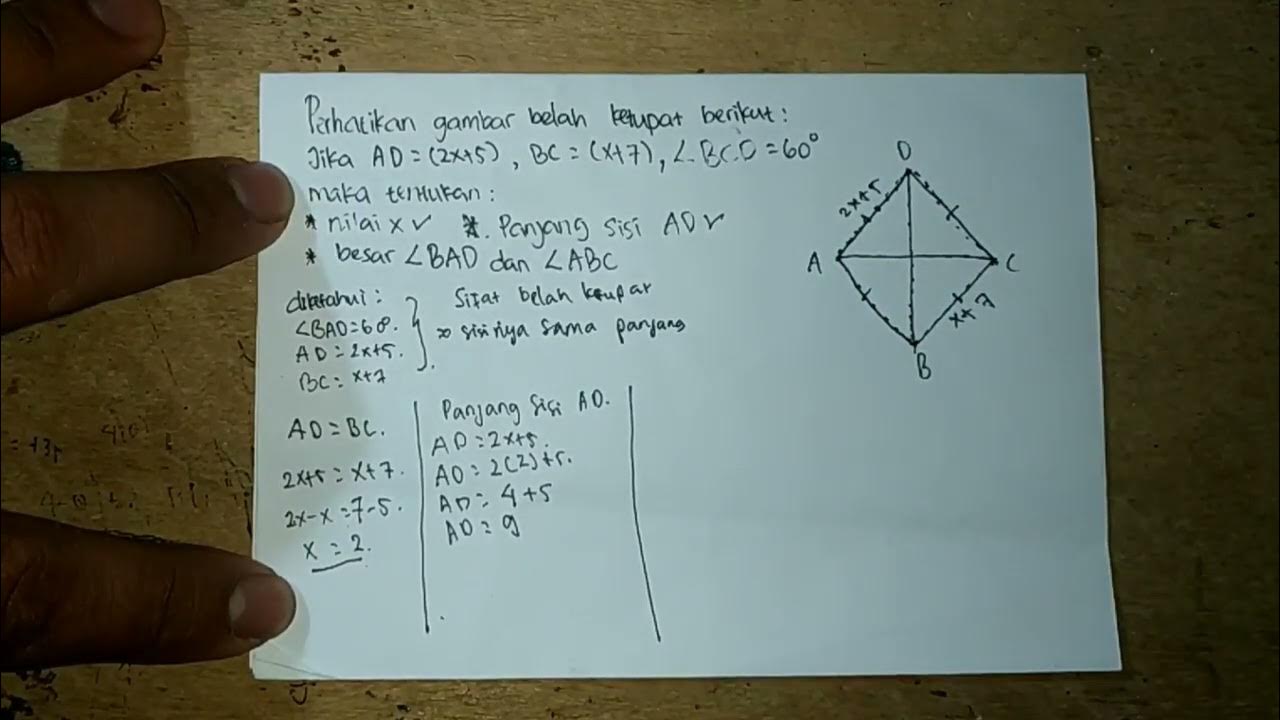 Perhatikan gambar belah ketupat berikut:
Jika AD = (2x+5), BC = (x+7), ∠BCD = 60°
maka tentukan:
* nilai x ✓ *. Panjang sisi AD ✓
* besar ∠BAD dan ∠ABC
diketahui:
∠BAD = 60.
AD = 2x+5.
BC = x+7
Sifat belah ketupat
sisinya sama panjang
AD = BC.
2x+5 = x+7.
2x-x = 7-5.
x = 2.
Panjang sisi AD.
AD = 2x+5.
AD = 2(2)+5.
AD = 4+5
AD = 9
D
2x+5
A
C
x+7
B